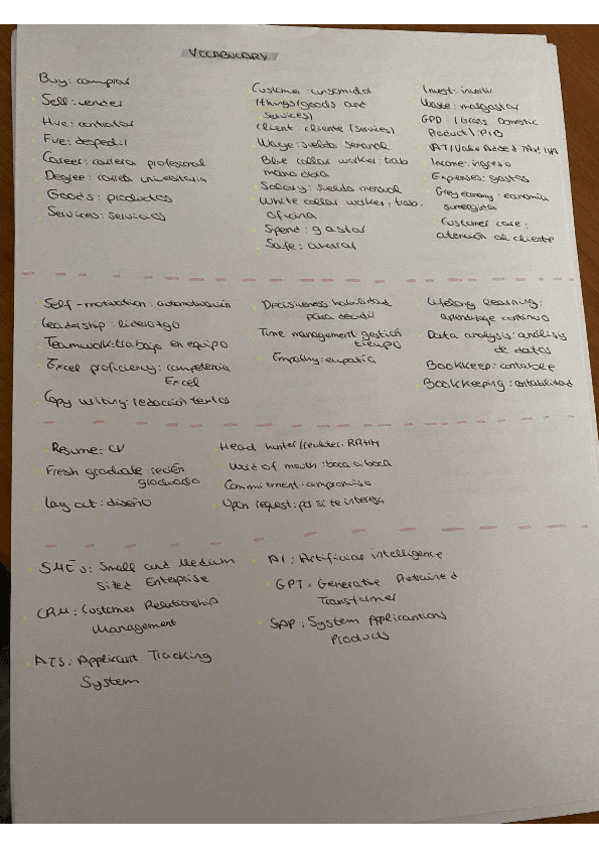 VOCABULARY
Buy: comprar
Sell: vender
Hire: contratar
Fire: despedir
Career: carrera profesional
Degree: carrera universitaria
Goods: productos
Services: servicios
Customer: consumidor
(things/goods and
services)
Client: cliente (services)
Wage: sueldo semanal
Blue collar worker: trab
mano obra
Salary: sueldo mensual
White collar worker: trab.
oficina
Spend: gastar
Safe: ahorrar
Invest: invertir
Waste: malgastar
GPD (Gross Domestic
Product): PIB
VAT (Value Added Tax): IVA
Income: ingreso
Expenses: gastos
Grey economy: economía
sumergida
Customer care:
atención al cliente
Self-motivation: automotivación
Leadership: liderazgo
Teamwork: trabajo en equipo
Excel proficiency: competencia
Excel
Copy writing: redacción textos
Decisiveness: habilidad
para decidir
Time management: gestión
tiempo
Empathy: empatía
Lifelong learning:
aprendizaje continuo
Data analysis: análisis
de datos
Bookkeep: contable
Bookkeeping: contabilidad
Resume: CV
Fresh graduate: recién
graduado
Lay out: diseño
Head hunter/recruiter: RRHH
Word of mouth: boca a boca
Commitment: compromiso
Upon request: por si te interesa
SMEs: Small and Medium
Sized Enterprise
CRM: Customer Relationship
Management
ATS: Applicant Tracking
System
AI: Artificial intelligence
GPT: Generative Pretrained
Transformer
SAP: System Applications
Products